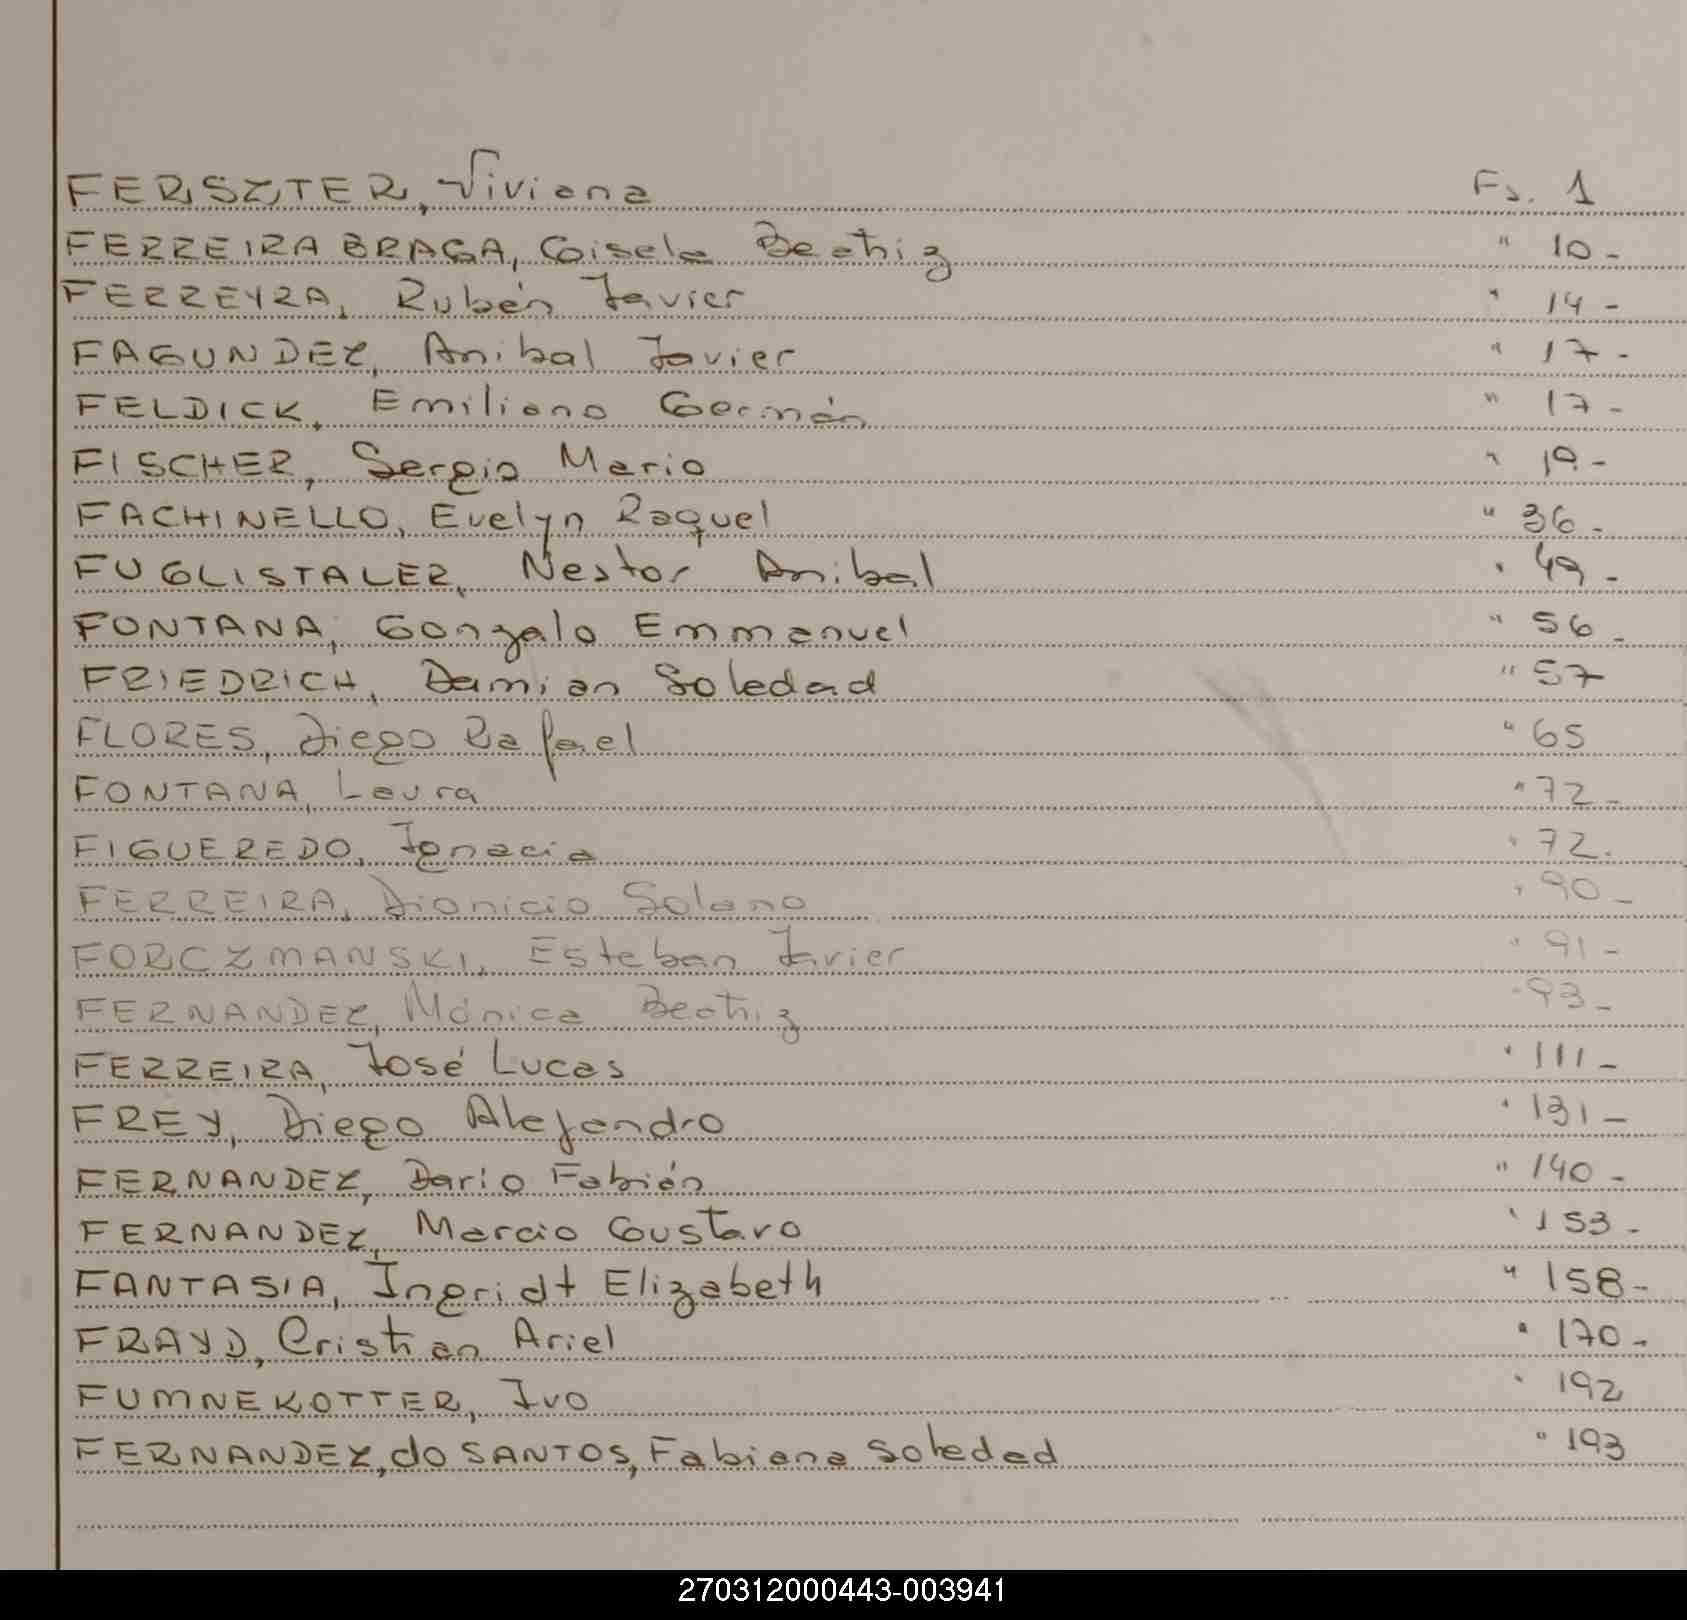 FERSZTER, Viviana Fs. 1
FERREIRA BRAGA, Gisela Beatriz " 10-
FERREYRA, Rubén Javier " 14-
FAGUNDEZ, Anibal Javier " 17-
FELDICK, Emiliano Germán " 17-
FISCHER, Sergio Mario " 19-
FACHINELLO, Evelyn Raquel " 36-
FUGLISTALER, Nestor Anibal " 49-
FONTANA, Gonzalo Emmanuel " 56-
FRIEDRICH, Damian Soledad " 57
FLORES, Diego Rafael " 65
FONTANA, Laura " 72-
FIGUEREDO, Ignacia " 72-
FERREIRA, Dionicio Solano " 90-
FORCZMANSKI, Esteban Javier " 91-
FERNANDEZ, Mónica Beatriz " 93-
FERREIRA, José Lucas " 111-
FREY, Diego Alejandro " 131-
FERNANDEZ, Dario Fabián " 140-
FERNANDEZ, Marcio Gustavo " 153-
FANTASIA, Ingridt Elizabeth " 158-
FRAYD, Cristian Ariel " 170-
FUMNEKOTTER, Ivo " 192
FERNANDEZ, do SANTOS, Fabiana Soledad " 193
270312000443-003941